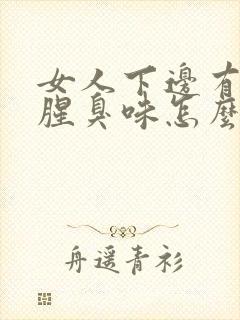 女人下邊有
腥臭味怎麼
舟遥青衫